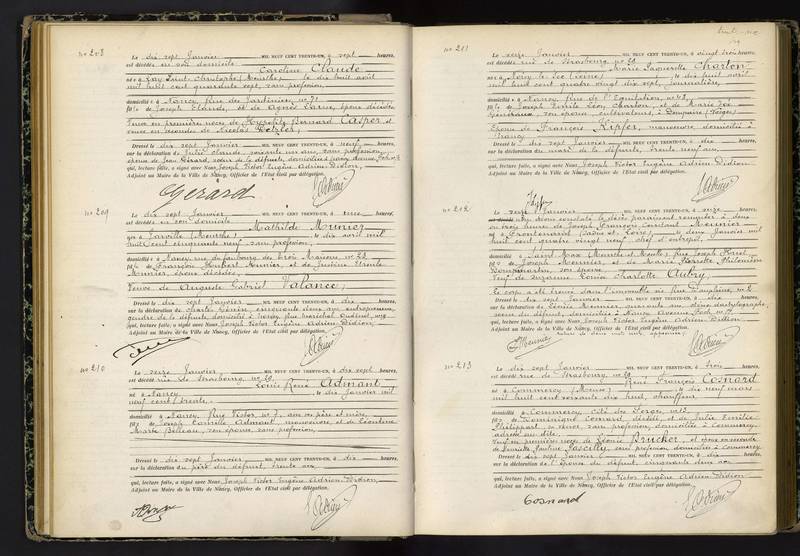 no 208
Le dix sept Janvier MIL NEUF CENT TRENTE-UN, à sept heures,
est décédée en son domicile
Caroline Claude
née à Lay Saint Christophe (Meurthe) le dix huit avril
mil huit cent quarante sept, sans profession,
domicilié e à Nancy, rue des Jardiniers, no 71
fille de Joseph Claude, et de Agnès
Veuve en premières noces de Bernard Casper, et
veuve en secondes de Nicolas
Dressé le dix sept Janvier MIL NEUF CENT TRENTE-UN, à neuf heures,
sur la déclaration de Julie Claude, soixante un ans, sans profession,
épouse de Jean Gérard, domiciliée à Nancy
qui, lecture faite, a signé avec Nous Joseph Victor Eugène Adrien Didion,
Adjoint au Maire de la Ville de Nancy, Officier de l'Etat civil par délégation.
Gérard
no 209
Le dix sept Janvier MIL NEUF CENT TRENTE-UN, à une heures,
est décédée en son domicile
Mathilde Mounier
née à Jarville (Meurthe) le dix avril mil
huit cent cinquante neuf, sans profession,
domiciliée à Nancy, rue du faubourg des Trois Maisons, no 22
fille de François Humbert Mounier, et de Justine Ursule
Meunier, époux décédés,
Veuve de Auguste Gabriel Valance,
Dressé le dix sept Janvier MIL NEUF CENT TRENTE-UN, à dix heures,
sur la déclaration de Charles Génin, cinquante deux ans, entrepreneur,
gendre de la défunte, domicilié à Nancy, rue Maréchal Oudinot,
qui, lecture faite, a signé avec Nous Joseph Victor Eugène Adrien Didion,
Adjoint au Maire de la Ville de Nancy, Officier de l'Etat civil par délégation.
no 210
Le seize Janvier MIL NEUF CENT TRENTE-UN, à dix sept heures,
est décédé rue de Strasbourg no 29,
Louis René Admant
né à Nancy le dix Janvier mil
neuf cent trente,
domicilié à Nancy, Rue Victor no 7, avec ses père et mère,
fils de Joseph Camille Admant, manoeuvre, et de Léontine
Marie Belleau, son épouse, sans profession,
Dressé le dix sept Janvier MIL NEUF CENT TRENTE-UN, à dix heures,
sur la déclaration du père du défunt, trente ans,
qui, lecture faite, a signé avec Nous Joseph Victor Eugène Adrien Didion,
Adjoint au Maire de la Ville de Nancy, Officier de l'Etat civil par délégation.
no 211
Le seize Janvier MIL NEUF CENT TRENTE-UN, à vingt trois heures,
est décédée rue de Strasbourg no 29
Marie Jacquerette Charton
née à le Sec (Vienne) le dix avril
mil huit cent quatre vingt dix sept, journalière,
domiciliée à Nancy, Rue de l'Equitation no 48,
fille de Joseph Charton, et de Marie
son épouse, cultivateurs, à Dompaire (Vosges)
Epouse de François Kipfer, manoeuvre, domicilié à
Nancy
Dressé le dix sept Janvier MIL NEUF CENT TRENTE-UN, à dix heures,
sur la déclaration du mari de la défunte, trente neuf ans,
qui, lecture faite, a signé avec Nous Joseph Victor Eugène Adrien Didion
Adjoint au Maire de la Ville de Nancy, Officier de l'Etat civil par délégation.
Kipfer
no 212
Le seize Janvier MIL NEUF CENT TRENTE-UN, à seize heures,
nous avons constaté le décès paraissant remonter à deux
ou trois heures de Joseph François Constant Meunier
né à (Saône et Loire) le deux Janvier mil
huit cent quatre vingt neuf, chef d'entrepôt,
domicilié à Saint Max (Meurthe et Moselle) rue Joseph
fils de Joseph Meunier, et de Marie Pierrette Philomène
son épouse,
Veuf de Suzanne Léonie Charlotte Aubry,
Le corps a été trouvé dans l'immeuble sis Rue Dauphine, no 2
Dressé le dix sept Janvier MIL NEUF CENT TRENTE-UN, à dix heures,
sur la déclaration de Cécile Meunier, quarante un ans, dactylographe,
soeur du défunt, domiciliée à Nancy Avenue Foch, no 19
qui, lecture faite, a signé avec Nous Joseph Victor Eugène Adrien Didion
Adjoint au Maire de la Ville de Nancy, Officier de l'Etat civil par délégation.
C Meunier
no 213
Le dix sept Janvier MIL NEUF CENT TRENTE-UN, à trois heures,
est décédé rue de Strasbourg no 29,
René François Cosnard
né à Commercy (Meuse) le neuf mars
mil huit cent soixante dix huit, chauffeur,
domicilié à Commercy, Cité des Forges, no 12
fils de Dominique Cosnard décédé, et de Julie Emilie
Philippart sa veuve, sans profession, domiciliée à Commercy
adresse sus dite,
Veuf en premières noces de Léonie Brucker, et époux en secondes
de Henriette Pauline sans profession domiciliée à Commercy
Dressé le dix sept Janvier MIL NEUF CENT TRENTE-UN, à dix heures,
sur la déclaration de l'épouse du défunt, cinquante deux ans,
qui, lecture faite, a signé avec Nous Joseph Victor Eugène Adrien Didion
Adjoint au Maire de la Ville de Nancy, Officier de l'Etat civil par délégation.
Cosnard